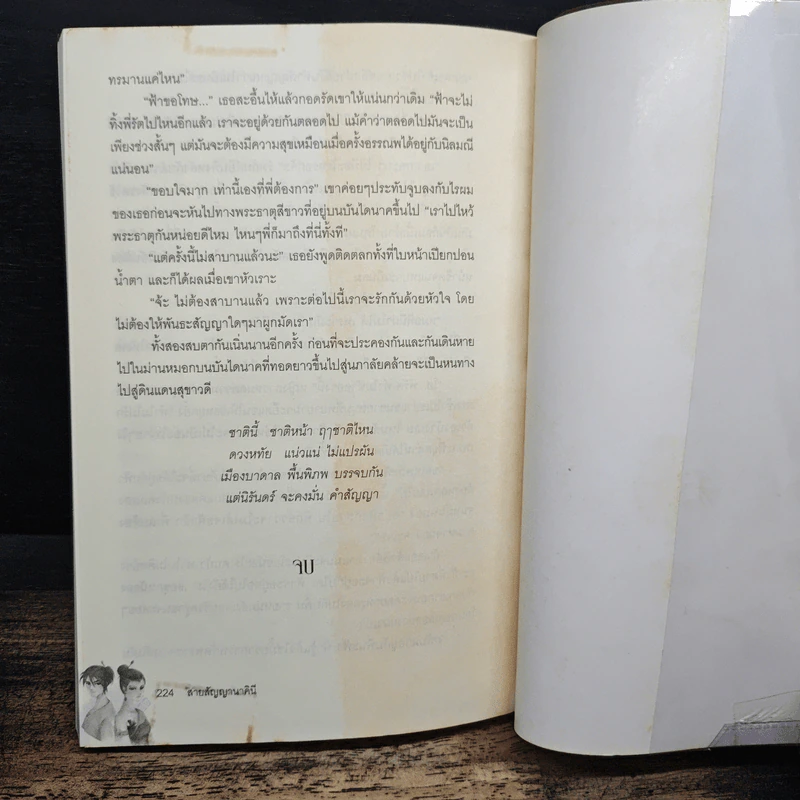 ทรมานแค่ไหน"
"ฟ้าขอโทษ..." เธอสะอื้นไห้แล้วกอดรัดเขาให้แน่นกว่าเดิม "ฟ้าจะไม่
ทิ้งพี่รัตไปไหนอีกแล้ว เราจะอยู่ด้วยกันตลอดไป แม้คำว่าตลอดไปมันจะเป็น
เพียงช่วงสั้นๆ แต่มันจะต้องมีความสุขเหมือนเมื่อครั้งอรรณพได้อยู่กับนิลมณี
แน่นอน"
"ขอบใจมาก เท่านี้เองที่พี่ต้องการ" เขาค่อยๆประทับจูบลงกับไรผม
ของเธอก่อนจะหันไปทางพระธาตุสีขาวที่อยู่บนบันไดนาคขึ้นไป "เราไปไหว้
พระธาตุกันหน่อยดีไหม ไหนๆพี่ก็มาถึงที่นี่ทั้งที"
"แต่ครั้งนี้ไม่สาบานแล้วนะ" เธอยังพูดติดตลกทั้งที่ใบหน้าเปียกปอน
น้ำตา และก็ได้ผลเมื่อเขาหัวเราะ
"จ้ะ ไม่ต้องสาบานแล้ว เพราะต่อไปนี้เราจะรักกันด้วยหัวใจ โดย
ไม่ต้องให้พันธะสัญญาใดๆมาผูกมัดเรา"
ทั้งสองสบตากันเนิ่นนานอีกครั้ง ก่อนที่จะประคองกันและกันเดินหาย
ไปในม่านหมอกบนบันไดนาคที่ทอดยาวขึ้นไปสู่นภาลัยคล้ายจะเป็นหนทาง
ไปสู่ดินแดนสุขาวดี
ชาตินี้ ชาติหน้า ฤๅชาติไหน
ดวงหทัย แน่วแน่ ไม่แปรผัน
เมืองบาดาล พื้นพิภพ บรรจบกัน
แต่นิรันดร์ จะคงมั่น คำสัญญา
จบ
224 สายสัญญานาคินี